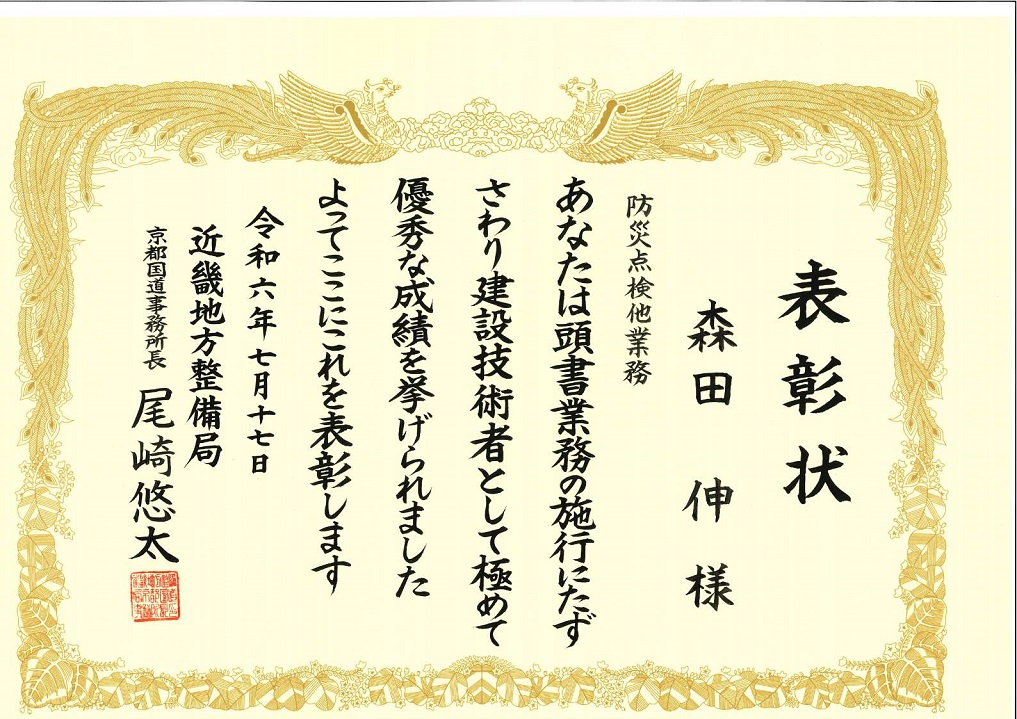 表彰状
森田 伸 様
防災点検他業務
あなたは頭書業務の施行にたず
さわり建設技術者として極めて
優秀な成績を挙げられました
よってここにこれを表彰します
令和六年七月十七日
近畿地方整備局
京都国道事務所長 尾崎悠太